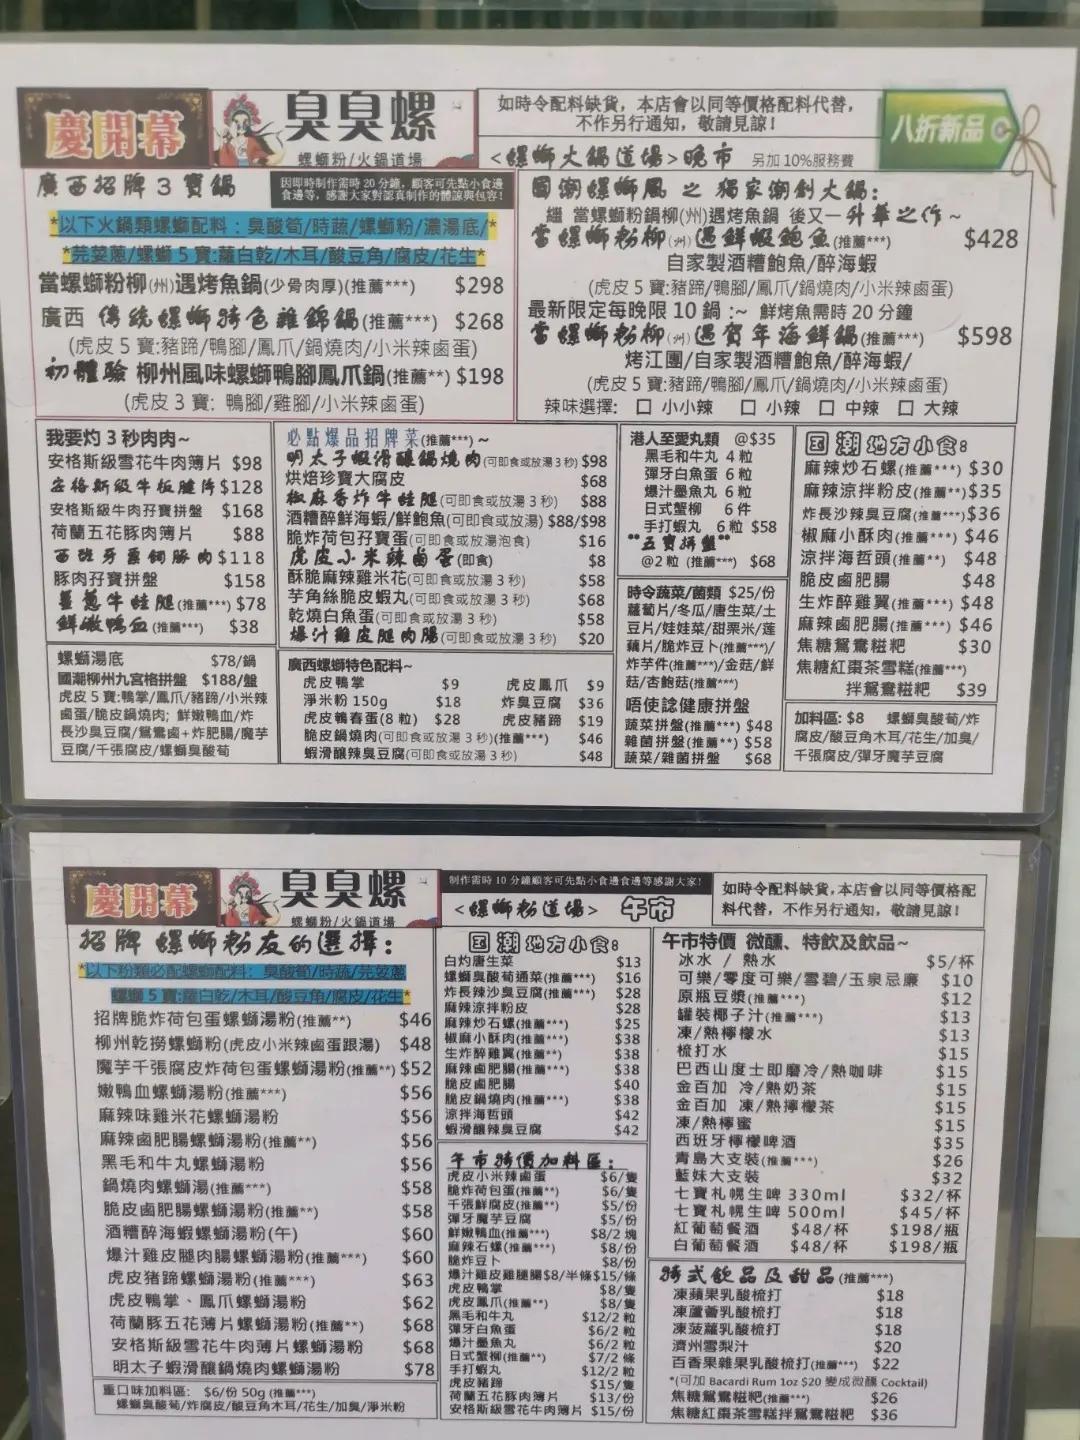 慶開幕
臭臭螺
螺螄粉/火鍋道場
如時令配料缺貨，本店會以同等價格配料代替，
不作另行通知，敬請見諒！
<螺螄火鍋道場>晚市 另加10%服務費
八折新品
廣西招牌3寶鍋
因即時制作需時20分鐘，顧客可先點小食邊
食邊等，感謝大家對認真制作的體諒與包容！
*以下火鍋類螺螄配料：臭酸筍/時蔬/螺螄粉/濃湯底/*
*芫荽蔥/螺螄5寶:蘿白乾/木耳/酸豆角/腐皮/花生*
當螺螄粉柳(州)遇烤魚鍋(少骨肉厚)(推薦***) $298
廣西 傳統螺螄特色雜錦鍋(推薦***) $268
(虎皮5寶:豬蹄/鴨腳/鳳爪/鍋燒肉/小米辣鹵蛋)
初體驗 柳州風味螺螄鴨腳鳳爪鍋(推薦**) $198
(虎皮3寶: 鴨腳/雞腳/小米辣鹵蛋)
國潮螺螄風 之 獨家潮創火鍋:
繼 當螺螄粉鍋柳(州)遇烤魚鍋 後又一升華之作~
當螺螄粉柳(州)遇鮮蝦鮑魚(推薦***) $428
自家製酒糟鮑魚/醉海蝦
(虎皮5寶:豬蹄/鴨腳/鳳爪/鍋燒肉/小米辣鹵蛋)
最新限定每晚限10鍋:~ 鮮烤魚需時20分鐘
當螺螄粉柳(州)遇賀年海鮮鍋(推薦***) $598
烤江團/自家製酒糟鮑魚/醉海蝦/
(虎皮5寶:豬蹄/鴨腳/鳳爪/鍋燒肉/小米辣鹵蛋)
辣味選擇: 口 小小辣 口 小辣 口 中辣 口 大辣
我要灼3秒肉肉~
安格斯級雪花牛肉薄片 $98
安格斯級牛板腱件 $128
安格斯級牛肉孖寶拼盤 $168
荷蘭五花豚肉簿片 $88
西班牙黑飼豚肉 $118
豚肉孖寶拼盤 $158
薑蔥牛蛙腿(推薦***) $78
鮮嫩鴨血(推薦***) $38
螺螄湯底 $78/鍋
國潮柳州九宮格拼盤 $188/盤
虎皮5寶:鴨掌/鳳爪/豬蹄/小米辣
鹵蛋/脆皮鍋燒肉; 鮮嫩鴨血/炸
長沙臭豆腐/鴛鴦鹵+炸肥腸/魔芋
豆腐/千張腐皮/螺螄臭酸荀
必點爆品招牌菜(推薦***)~
明太子蝦滑釀鍋燒肉(可即食或放湯3秒) $98
烘焙珍寶大腐皮 $68
椒麻香炸牛蛙腿(可即食或放湯3秒) $88
酒糟醉鮮海蝦/鮮鮑魚(可即食或放湯) $88/$98
脆炸荷包孖寶蛋(可即食或放湯泡食) $16
虎皮小米辣鹵蛋(即食) $8
酥脆麻辣雞米花(可即食或放湯3秒) $58
芋角絲脆皮蝦丸(可即食或放湯3秒) $68
乾燒白魚蛋(可即食或放湯3秒) $58
爆汁雞皮腿肉腸(可即食或放湯3秒) $20
廣西螺螄特色配料~
虎皮鴨掌 $9 虎皮鳳爪 $9
淨米粉150g $18 炸臭豆腐 $36
虎皮鵪春蛋(8粒) $28 虎皮豬蹄 $19
脆皮鍋燒肉(可即食或放湯3秒)(推薦***) $46
蝦滑釀辣臭豆腐(可即食或放湯3秒) $48
港人至愛丸類 @$35
黑毛和牛丸 4粒
彈牙白魚蛋 6粒
爆汁墨魚丸 6粒
日式蟹柳 6件
手打蝦丸 6粒 $58
**五寶拼盤**
@2粒(推薦***) $68
時令蔬菜/菌類 $25/份
蘿蔔片/冬瓜/唐生菜/土
豆片/娃娃菜/甜粟米/蓮
藕片/脆炸豆卜(推薦***)/
炸芋件(推薦***)/金菇/鮮
菇/杏鮑菇(推薦***)
唔使諗健康拼盤
蔬菜拼盤(推薦***) $48
雜菌拼盤(推薦**) $58
蔬菜/雜菌拼盤 $68
国潮地方小食8
麻辣炒石螺(推薦***) $30
麻辣涼拌粉皮(推薦**) $35
炸長沙辣臭豆腐(推薦***) $36
椒麻小酥肉(推薦***) $46
涼拌海哲頭(推薦**) $48
脆皮鹵肥腸 $48
生炸醉雞翼(推薦**) $48
麻辣鹵肥腸(推薦***) $46
焦糖鴛鴦糍粑 $30
焦糖紅棗茶雪糕(推薦***)
拌鴛鴦糍粑 $39
加料區: $8 螺螄臭酸荀/炸
腐皮/酸豆角木耳/花生/加臭/
千張腐皮/彈牙魔芋豆腐
慶開幕
臭臭螺
螺螄粉/火鍋道場
制作需時10分鐘顧客可先點小食邊食邊等感謝大家!
<螺螄粉道場> 午市
如時令配料缺貨，本店會以同等價格配
料代替，不作另行通知，敬請見諒！
招牌 螺螄粉友的選擇:
*以下粉類必配螺螄配料: 臭酸荀/時蔬/芫荽蔥
螺螄5寶:蘿白乾/木耳/酸豆角/腐皮/花生*
招牌脆炸荷包蛋螺螄湯粉(推薦**) $46
柳州乾撈螺螄粉(虎皮小米辣鹵蛋跟湯) $48
魔芋千張腐皮炸荷包蛋螺螄湯粉(推薦**) $52
嫩鴨血螺螄湯粉(推薦***) $56
麻辣味雞米花螺螄湯粉 $56
麻辣鹵肥腸螺螄湯粉(推薦**) $56
黑毛和牛丸螺螄湯粉 $56
鍋燒肉螺螄湯(推薦***) $58
脆皮鹵肥腸螺螄湯粉(推薦**) $58
酒糟醉海蝦螺螄湯粉(午) $60
爆汁雞皮腿肉腸螺螄湯粉(推薦***) $60
虎皮猪蹄螺螄湯粉(推薦***) $63
虎皮鴨掌、鳳爪螺螄湯粉 $62
荷蘭豚五花薄片螺螄湯粉(推薦**) $68
安格斯級雪花牛肉薄片螺螄湯粉 $68
明太子蝦滑釀鍋燒肉螺螄湯粉 $78
重口味加料區: $6/份 50g(推薦***)
螺螄臭酸荀/炸腐皮/酸豆角木耳/花生/加臭/淨米粉
国潮地方小食8
白灼唐生菜 $13
螺螄臭酸荀通菜(推薦***) $16
炸長辣沙臭豆腐(推薦***) $28
麻辣涼拌粉皮 $28
麻辣炒石螺(推薦***) $25
椒麻小酥肉(推薦***) $38
生炸醉雞翼(推薦**) $38
麻辣鹵肥腸(推薦***) $38
脆皮鹵肥腸 $40
脆皮鍋燒肉(推薦***) $38
涼拌海哲頭 $42
蝦滑釀辣臭豆腐 $42
午市特價加料區:
虎皮小米辣鹵蛋 $6/隻
脆炸荷包蛋(推薦**) $6/隻
千張鮮腐皮(推薦**) $5/份
彈牙魔芋豆腐 $5/份
鮮嫩鴨血(推薦***) $8/2塊
麻辣石螺(推薦***) $8/份
脆炸豆卜 $8/份
爆汁雞皮雞腿腸$8/半條$15/條
虎皮鴨掌 $8/隻
虎皮鳳爪(推薦**) $8/隻
黑毛和牛丸 $12/2粒
彈牙白魚蛋 $6/2粒
爆汁墨魚丸 $6/2粒
日式蟹柳(推薦**) $7/2條
手打蝦丸 $12/2粒
虎皮豬蹄 $15/隻
荷蘭五花豚肉簿片 $13/份
安格斯級雪花牛肉簿片 $15/份
午市特價 微醺、特飲及飲品~
冰水 / 熱水 $5/杯
可樂/零度可樂/雪碧/玉泉忌廉 $10
原瓶豆漿(推薦***) $12
罐裝椰子汁(推薦***) $13
凍/熱檸檬水 $13
梳打水 $15
巴西山度士即磨冷/熱咖啡 $15
金百加 冷/熱奶茶 $15
金百加 凍/熱擰檬茶 $15
凍/熱檸蜜 $15
西班牙檸檬啤酒 $35
青島大支裝(推薦***) $26
藍妹大支裝 $32
七寶札幌生啤 330ml $32/杯
七寶札幌生啤 500ml $45/杯
紅葡萄餐酒 $48/杯 $198/瓶
白葡萄餐酒 $48/杯 $198/瓶
特式飲品及甜品(推薦***)
凍蘋果乳酸梳打 $18
凍蘆薈乳酸梳打 $18
凍菠蘿乳酸梳打 $18
濟州雪梨汁 $20
百香果雜果乳酸梳打(推薦***) $22
*(可加 Bacardi Rum 1oz $20 變成微醺 Cocktail)
焦糖鴛鴦糍粑(推薦***) $26
焦糖紅棗茶雪糕拌鴛鴦糍粑 $36